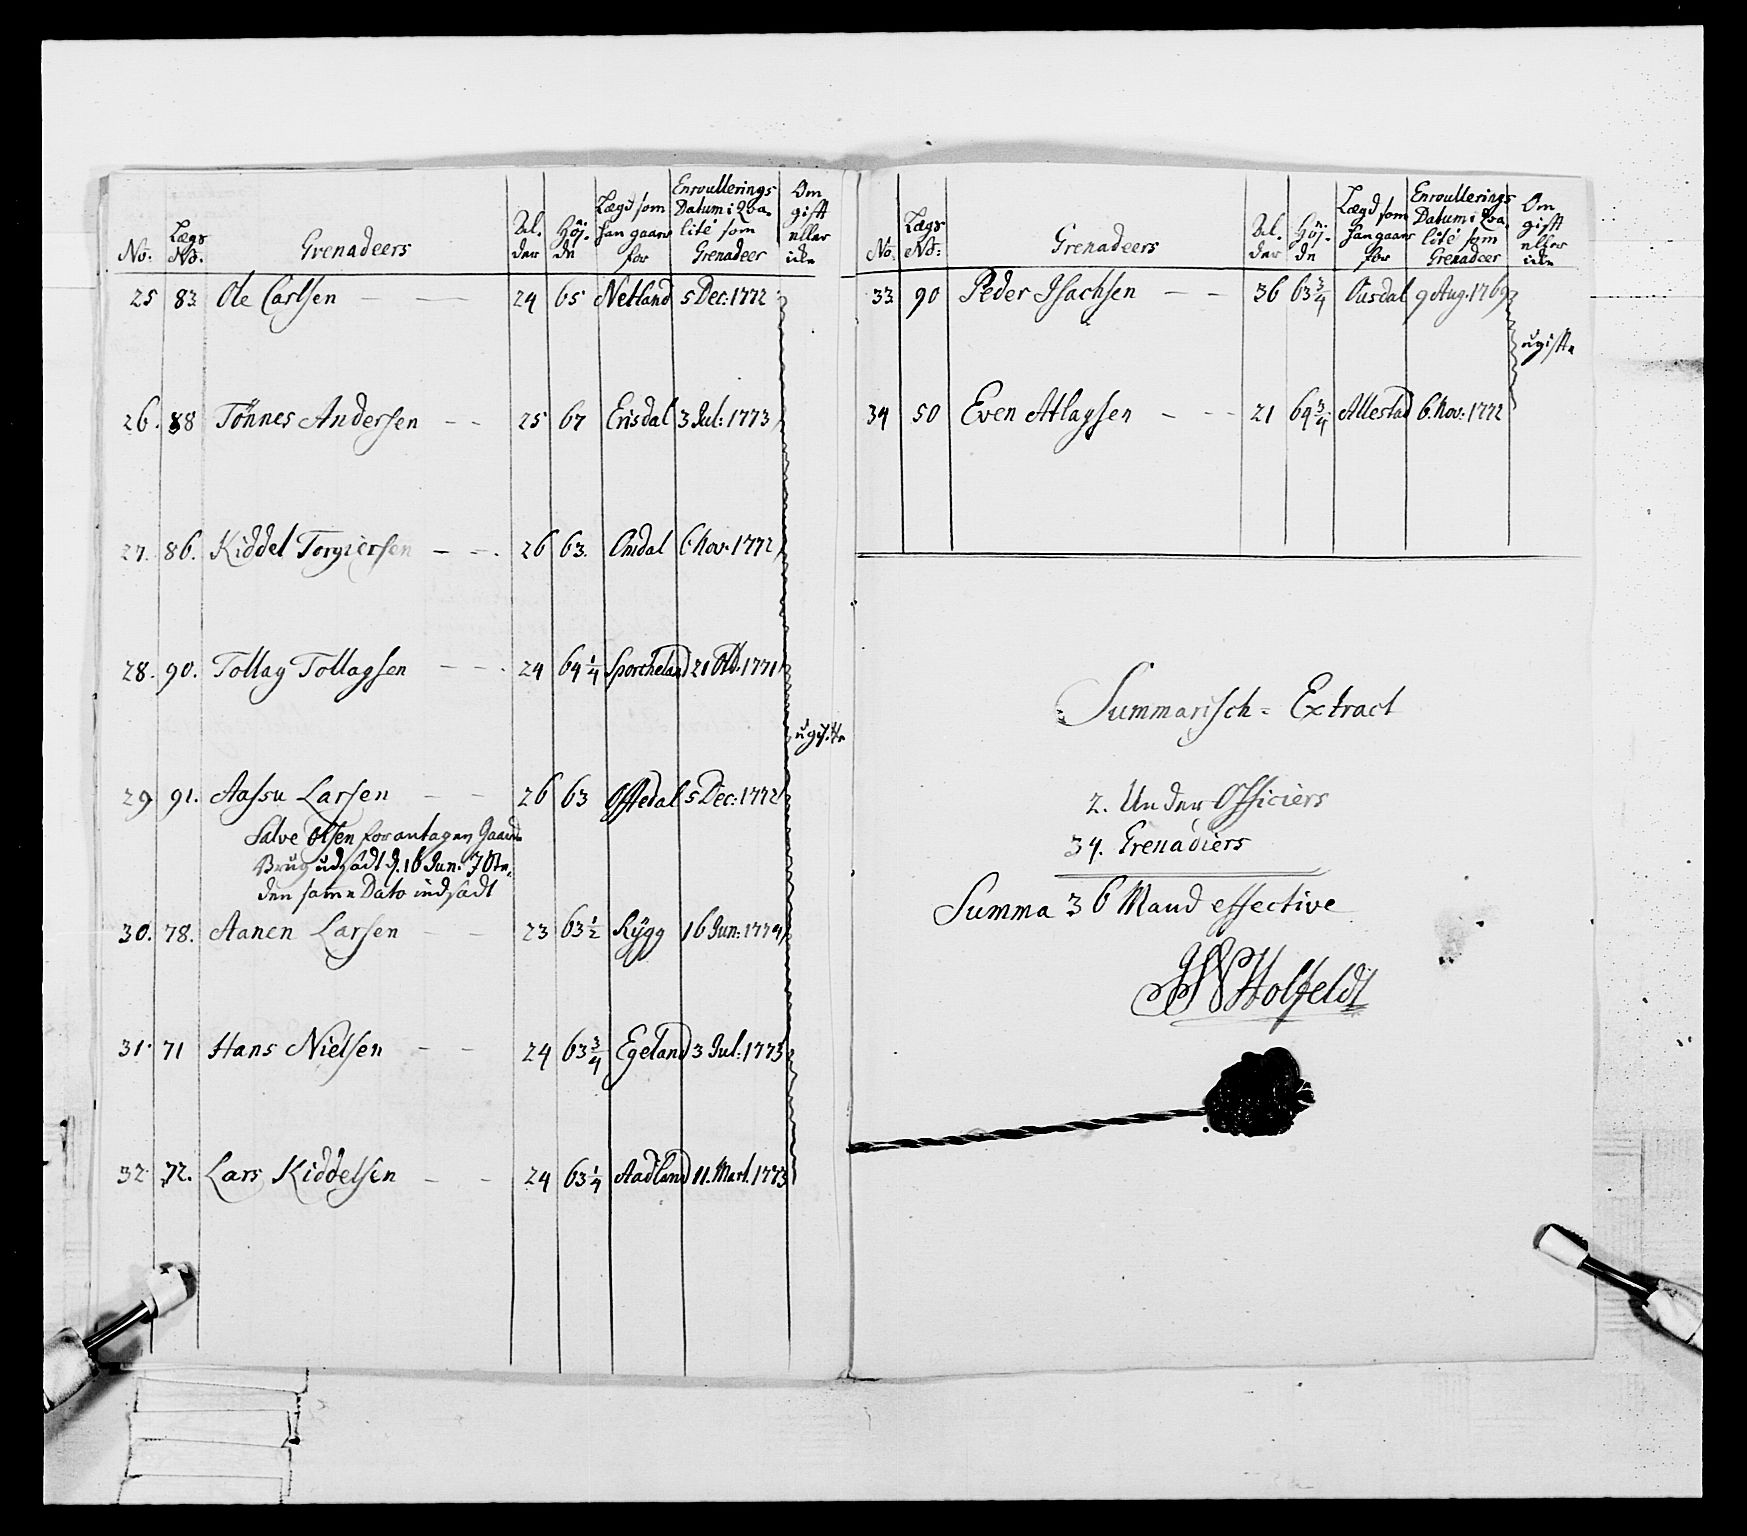 No. Lægs No. Grenadeers Al. der Høj. de Lægd som han gaar for Enroullerings Datum i Qva. lité som Grenadeer Om gift eller ikke
25 83 Ole Carlsen — — 24 65 Netland 5 Dec: 1772
26. 88 Tönnes Andersen — — 25 67 Erisdal 3 Jul: 1773
27. 86. Kiddel Torgiersen — — 26 63. Omdal 6 Nov: 1772
28. 90. Tollag Tollagsen — — 24 64 1/4 Sporcheland 21 Oct. 1771
ugifte
29 91. Aassu Larsen — — 26 63 Offedal 5 Dec: 1772
Salve Olsen for antagen Gaard
Brug udsadt d. 16 Jun:
den samme Dato indsadt
30. 78. Aanen Larsen — — 23 63 1/2 Rÿgg 16 Jun: 1774
31. 71 Hans Nielsen — — 24 63 3/4 Egeland 3 Jul: 1773
32. 72. Lars Kiddelsen — — 24 63 1/4 Aadland 11. Mart. 1773
No. Lægs No: Grenadeers Al. der Høj. de Lægd som han gaar for Enroullerings Datum i Qva. lité som Grenadeer Om gift eller ikke
33 90 Peder Isachsen — — 36 63 3/4 Ousdal 9 Aug. 1769
ugifte
34 50 Even Atlagsen — — 21 64 3/4 Allestad 6. Nov: 1772
Summarisch = Extract
2. Under Officiers
34. Grenadiers
Summa 36 Mand effective
Holfeldt